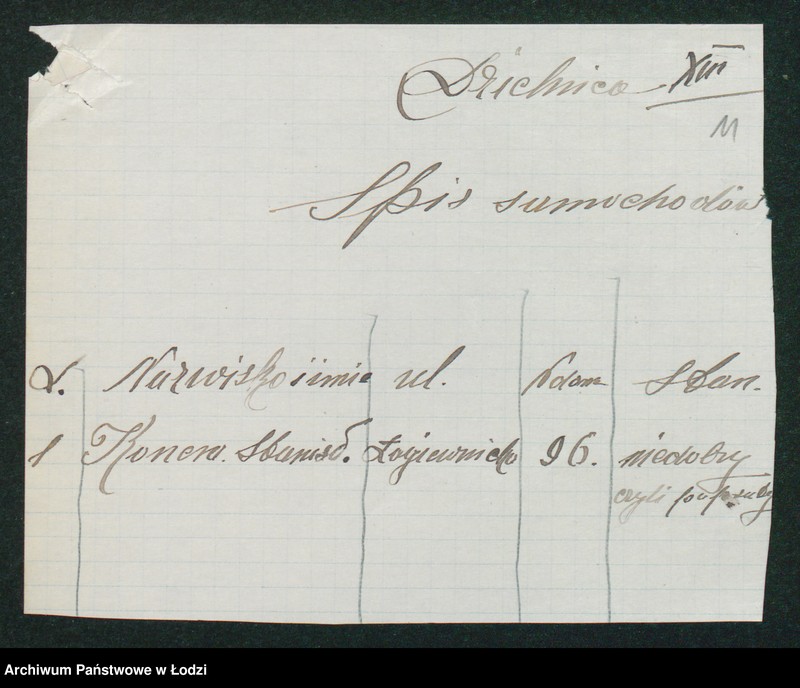 Dzielnica XIII
11
Spis samochodów
L. Nazwisko i imie ul. № domu Stan.
1 Koncw. Stanisł. Łagiewnicka 96. niedobry
czyli popsuty
Archiwum Państwowe w Łodzi